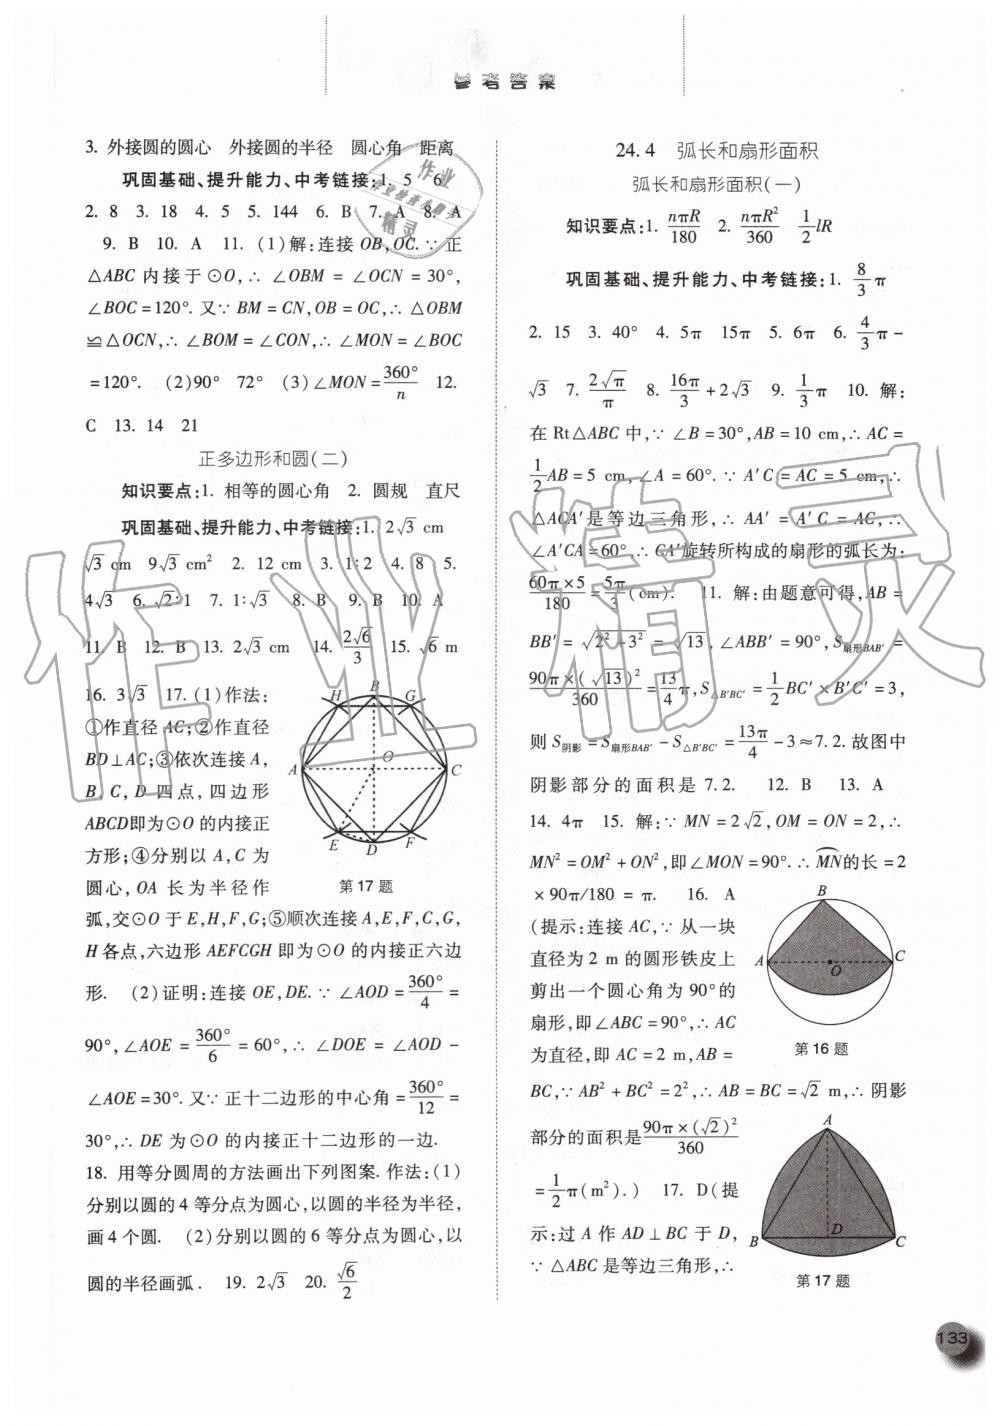 参考答案
3. 外接圆的圆心 外接圆的半径 圆心角 距离
巩固基础、提升能力、中考链接:1. 5 6
2. 8 3. 18 4. 5 5. 144 6. B 7. A 8. A
9. B 10. A 11. (1)解:连接 OB,OC.∵正
△ABC 内接于⊙O,∴∠OBM=∠OCN=30°,
∠BOC=120°.又∵BM=CN,OB=OC,∴△OBM
≌△OCN,∴∠BOM=∠CON,∴∠MON=∠BOC
=120°. (2)90° 72° (3)∠MON=360°/n 12.
C 13. 14 21
正多边形和圆(二)
知识要点:1. 相等的圆心角 2. 圆规 直尺
巩固基础、提升能力、中考链接:1. 2√3 cm
√3 cm 9√3 cm² 2. 12 cm 3. 1∶2 4. 8 5.
4√3 6. √2∶1 7. 1∶√3 8. B 9. B 10. A
11. B 12. B 13. 2√3 cm 14. 2√6/3 15. √6 m
16. 3√3 17. (1)作法:
①作直径 AC;②作直径
BD⊥AC;③依次连接 A,
B,C,D 四点,四边形
ABCD即为⊙O 的内接正
方形;④分别以 A,C 为
圆心,OA 长为半径作
弧,交⊙O 于 E,H,F,G;⑤顺次连接 A,E,F,C,G,
H 各点,六边形 AEFCGH 即为⊙O 的内接正六边
形. (2)证明:连接 OE,DE.∵∠AOD=360°/4=
90°,∠AOE=360°/6=60°,∴∠DOE=∠AOD-
∠AOE=30°.又∵正十二边形的中心角=360°/12=
30°,∴DE 为⊙O 的内接正十二边形的一边.
18. 用等分圆周的方法画出下列图案.作法:(1)
分别以圆的 4 等分点为圆心,以圆的半径为半径,
画 4 个圆. (2)分别以圆的 6 等分点为圆心,以
圆的半径画弧. 19. 2√3 20. √6/2
H B G
A O C
E D F
第 17 题
24.4 弧长和扇形面积
弧长和扇形面积(一)
知识要点:1. nπR/180 2. nπR²/360 1/2 lR
巩固基础、提升能力、中考链接:1. 8/3 π
2. 15 3. 40° 4. 5π 15π 5. 6π 6. 4/3 π-
√3 7. 2√π/π 8. 16π/3+2√3 9. 1/3 π 10. 解:
在 Rt△ABC 中,∵∠B=30°,AB=10 cm,∴AC=
1/2 AB=5 cm,∠A=60°.∵A′C=AC=5 cm,∴
△ACA′是等边三角形,∴AA′=A′C=AC,∴
∠A′CA=60°,∴CA′旋转所构成的扇形的弧长为:
60π×5/180=5π/3(cm). 11. 解:由题意可得,AB=
BB′=√2²+3²=√13,∠ABB′=90°,S扇形BAB′=
90π×(√13)²/360=13/4 π,S△B′BC′=1/2 BC′×B′C′=3,
则 S阴影=S扇形BAB′-S△B′BC′=13π/4-3≈7.2.故图中
阴影部分的面积是 7.2. 12. B 13. A
14. 4π 15. 解:∵MN=2√2,OM=ON=2,∴
MN²=OM²+ON²,即∠MON=90°.∴MN的长=2
×90π/180=π. 16. A
(提示:连接 AC,∵从一块
直径为 2 m 的圆形铁皮上
剪出一个圆心角为 90°的
扇形,即∠ABC=90°,∴AC
为直径,即 AC=2 m,AB=
BC,∵AB²+BC²=2²,∴AB=BC=√2 m,∴阴影
部分的面积是90π×(√2)²/360
=1/2 π(m²).) 17. D(提
示:过 A 作 AD⊥BC 于 D,
∵△ABC 是等边三角形,∴
B
A O C
第 16 题
A
B D C
第 17 题
133
作业
精灵
作业精灵